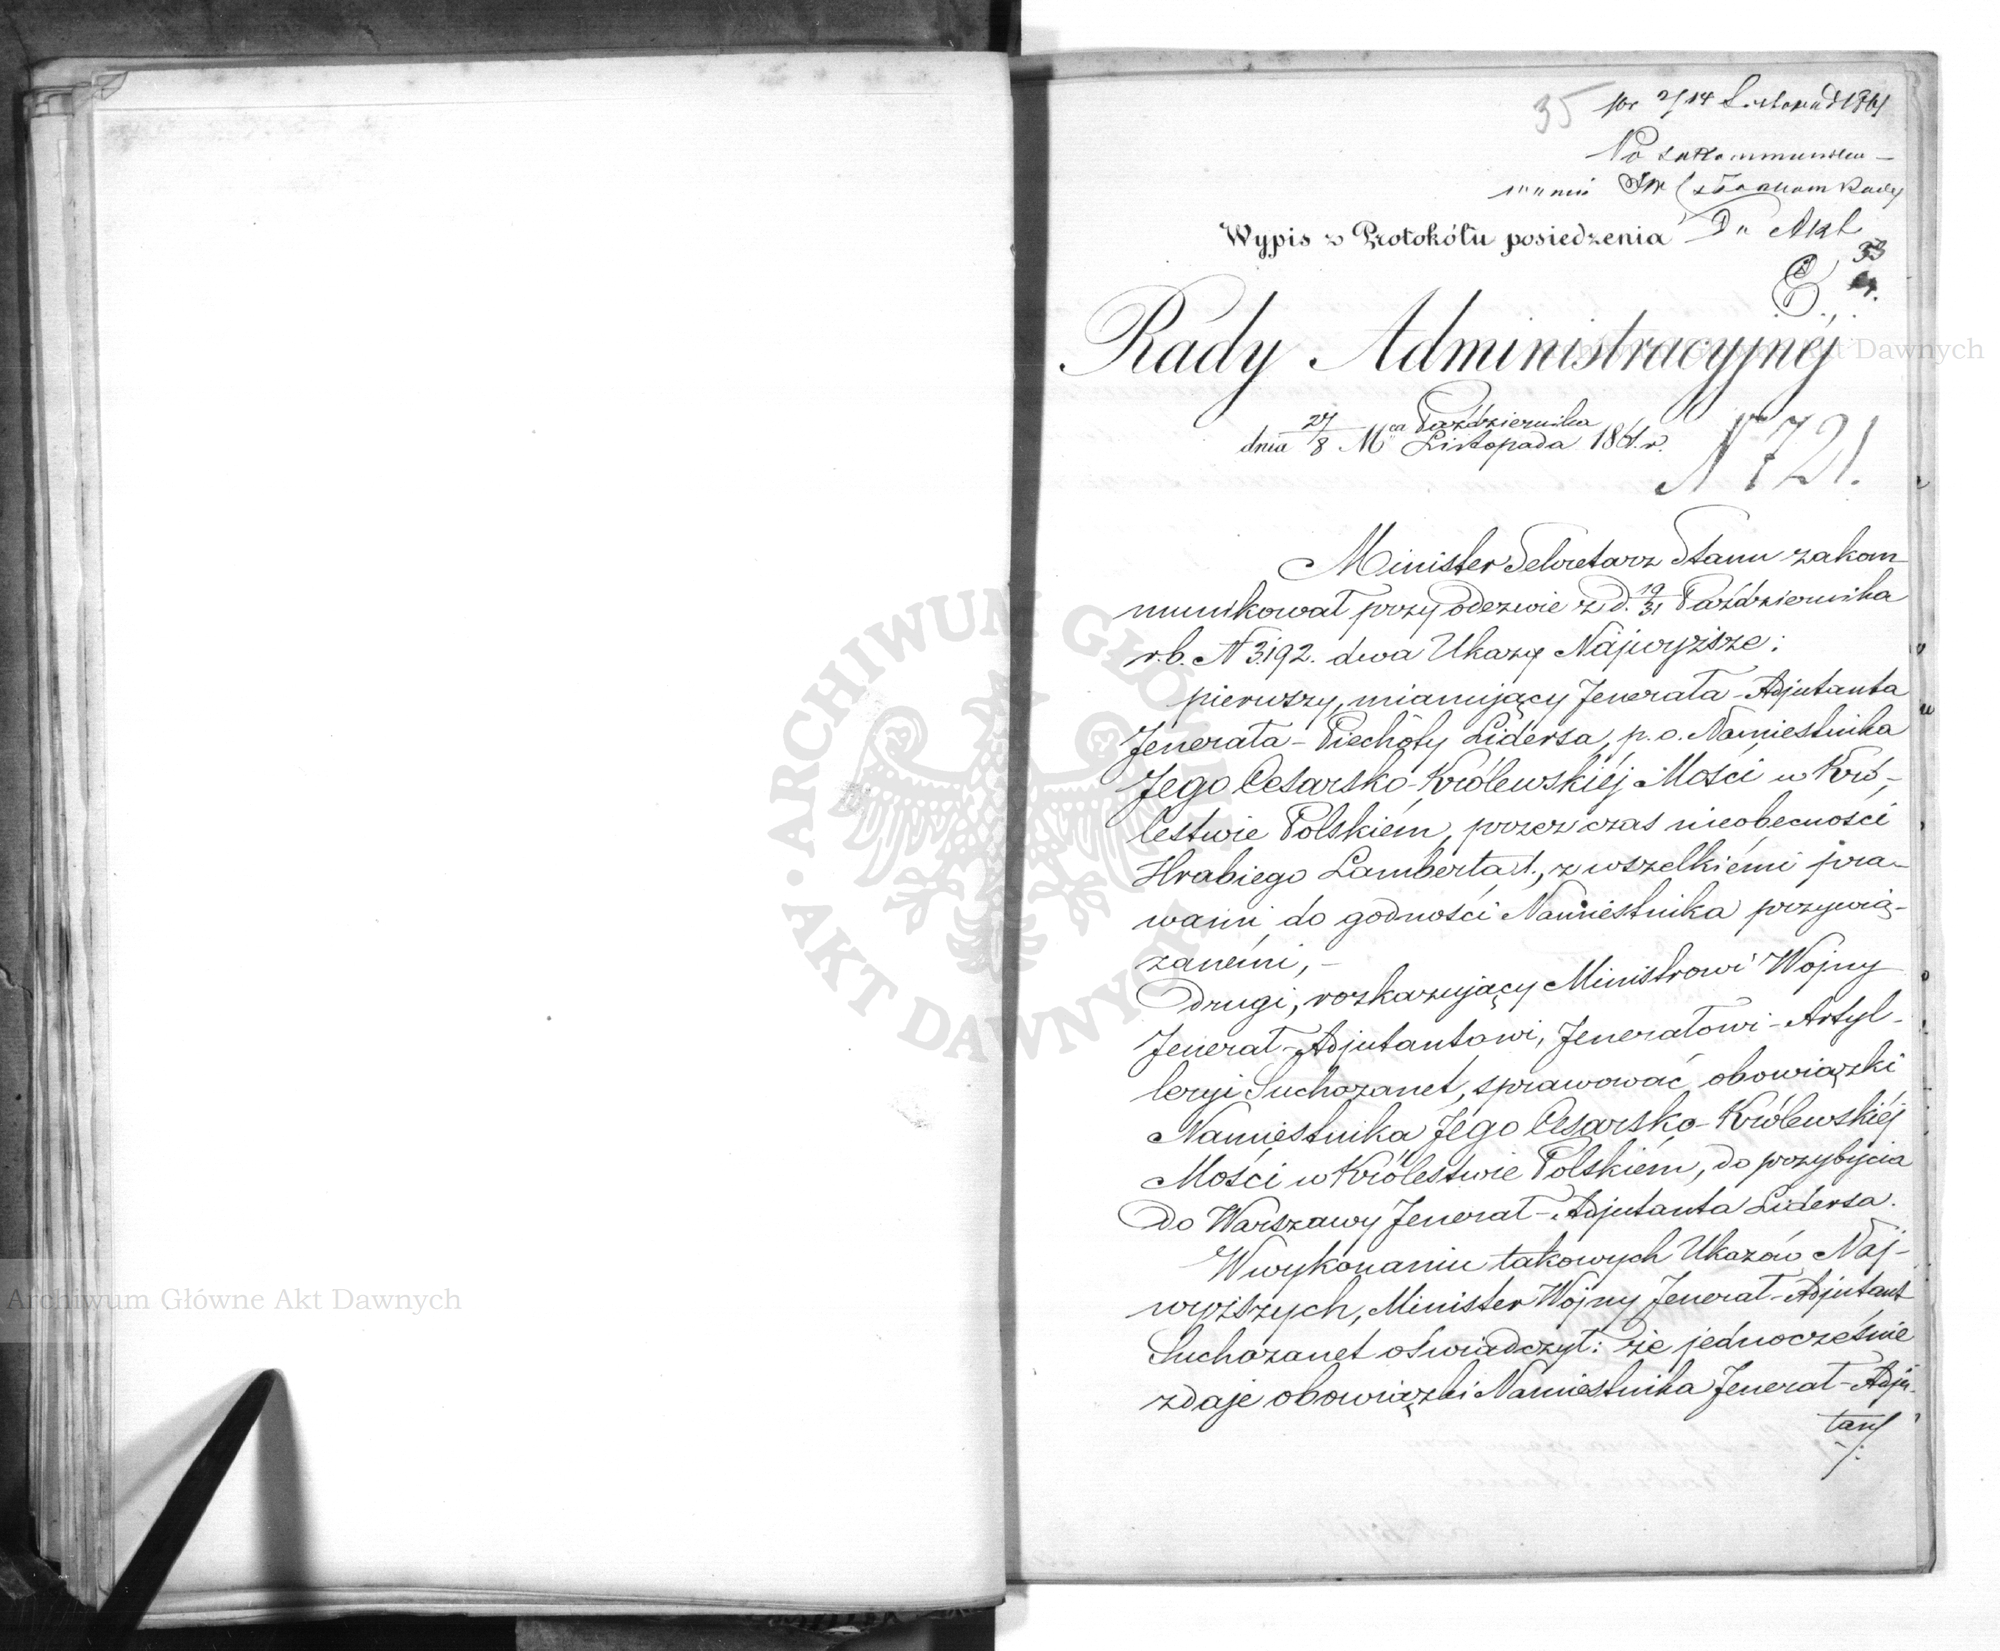 35 pr 2/14 Listopad 1861
Po zakommuniko-
waniu JW Członkom Rady
Do Akt
Wypis z Protokółu posiedzenia
33
Rady Administracyjnéj
dnia 27/8 Mca Października/Listopada 1861.r.
N 721.
Minister Sekretarz Stanu zakom-
munikował przy odezwie z d. 19/31 Października
r.b. N 3192. dwa Ukazy Najwyższe:
pierwszy, mianujący Jenerała-Adjutanta
Jenerała-Piechoty Lidersa, p.o. Namiestnika
Jego Cesarsko-Królewskiéj Mości w Kró-
lestwie Polskiém, przez czas nieobecności
Hrabiego Lamberta 1., z wszelkiémi pra-
wami do godności Namiestnika przywią-
zanémi,-
drugi, rozkazujący Ministrowi Wojny
Jenerał-Adjutantowi, Jenerałowi-Artyl-
leryi Suchozanet, sprawować obowiązki
Namiestnika Jego Cesarsko-Królewskiéj
Mości w Królestwie Polskiém, do przybycia
do Warszawy Jenerał-Adjutanta Lidersa.
W wykonaniu takowych Ukazów Naj-
wyższych, Minister Wojny Jenerał-Adjutant
Suchozanet oświadczył: że jednocześnie
zdaje obowiązki Namiestnika Jenerał-Adju-
tant
ARCHIWUM GŁÓWNE AKT DAWNYCH
Archiwum Główne Akt Dawnych
Archiwum Główne Akt Dawnych